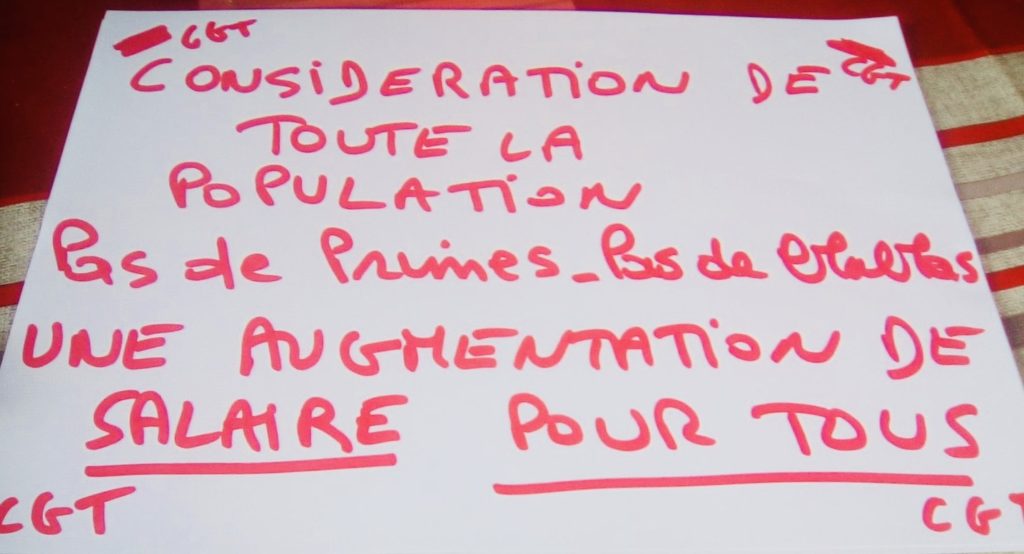 CGT
CGT
CONSIDERATION DE
TOUTE LA
POPULATION
Pas de Primes - Pas de blablas
UNE AUGMENTATION DE
SALAIRE POUR TOUS
CGT
CGT